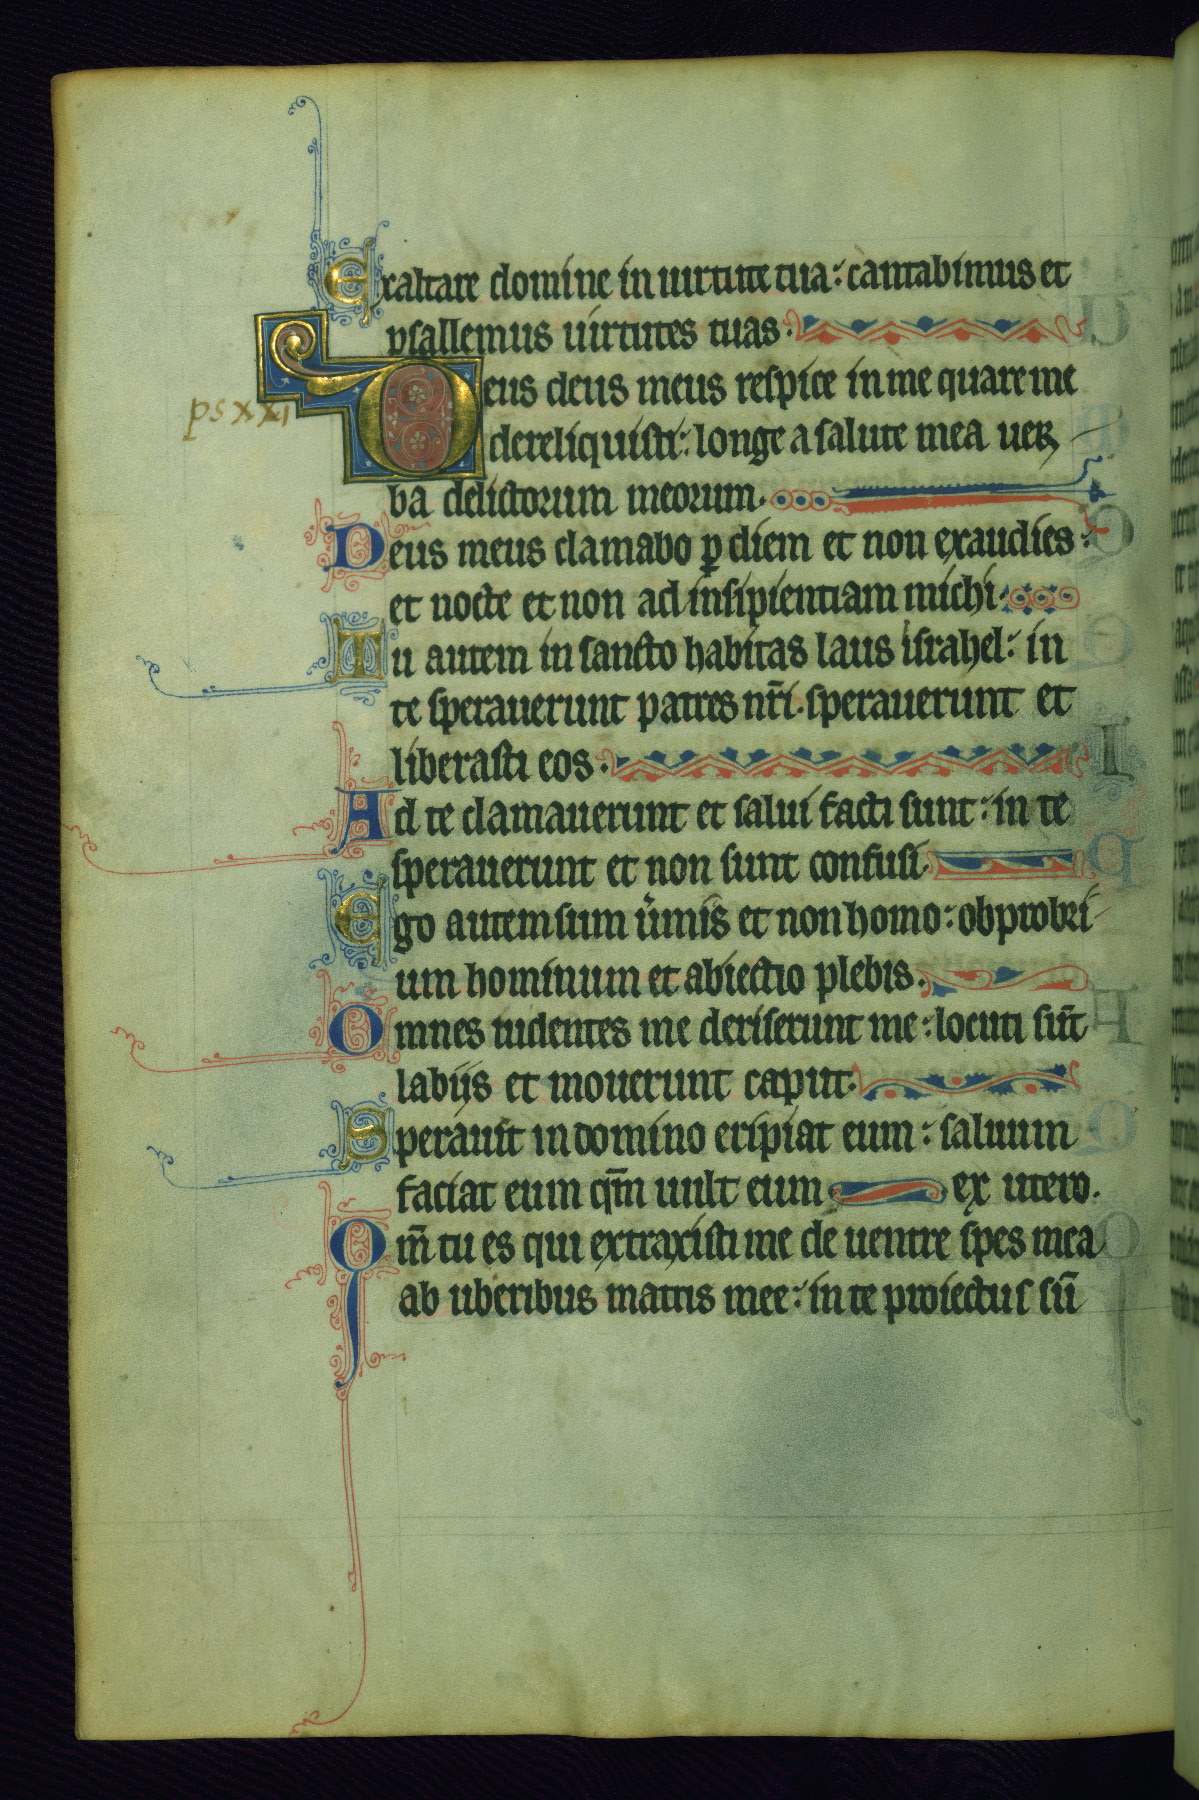 Exaltare domine in uirtute tua: cantabimus et
psallemus uirtutes tuas.
ps xxi
Deus deus meus respice in me quare me
dereliquisti: longe a salute mea uer
ba delictorum meorum.
Deus meus clamabo ꝑ diem et non exaudies:
et nocte et non ad insipientiam michi.
Tu autem in sancto habitas laus israhel: in
te sperauerunt patres nr̄i. sperauerunt et
liberasti eos.
Ad te clamauerunt et salui facti sunt: in te
sperauerunt et non sunt confusi.
Ego autem sum u̾mis et non homo: obprobri
um hominum et abiectio plebis.
Omnes uidentes me deriserunt me: locuti sūt
labijs et mouerunt caput.
Sperauit in domino eripiat eum: saluum
faciat eum qm̄ uult eum ex utero.
Qm̄ tu es qui extraxisti me de uentre spes mea
ab uberibus matris mee: in te proiectus sū